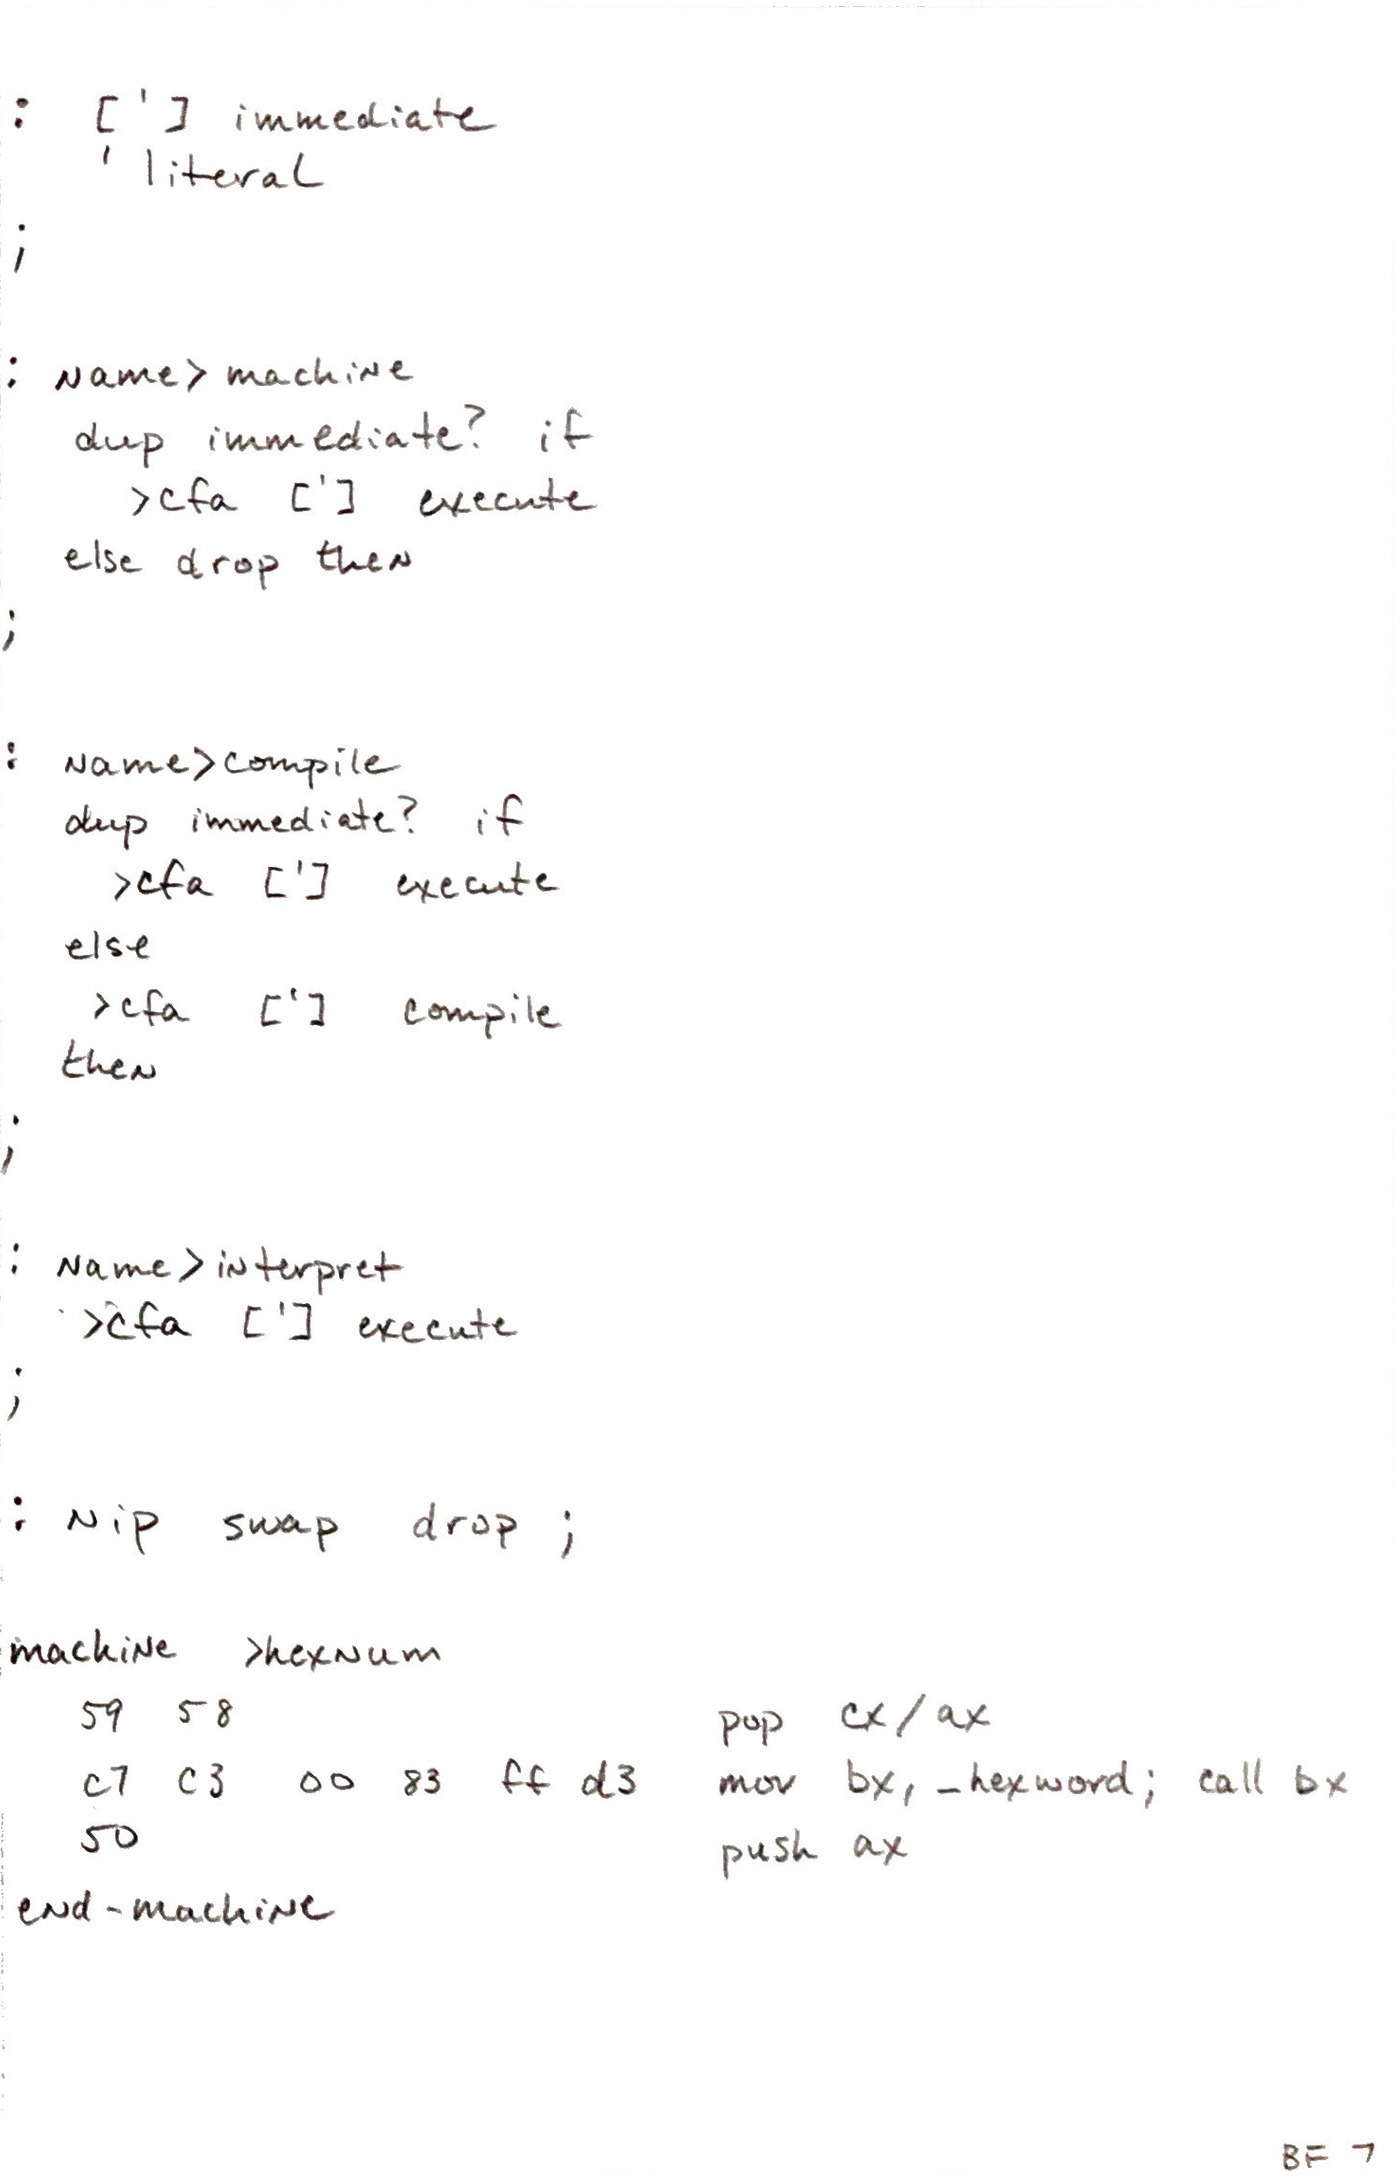 : ['] immediate
' literal
;
: name> machine
dup immediate? if
>cfa ['] execute
else drop then
;
: name>compile
dup immediate? if
>cfa ['] execute
else
>cfa ['] compile
then
;
: name>interpret
>cfa ['] execute
;
: nip swap drop ;
machine >hexnum
59 58 pop cx/ax
c7 c3 00 83 ff d3 mov bx, _hexword; call bx
50 push ax
end-machine
BF 7